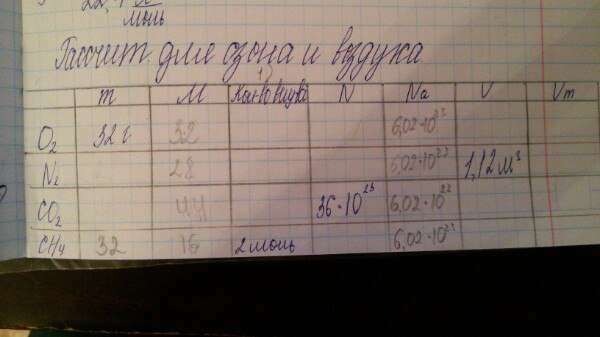 22,4 л
моль
Рассчет для озона и воздуха
m M Кол-во вещ-ва N Na V Vm
O₂ 32 г. 32 6,02·10²³
N₂ 28 6,02·10²³ 1,12 м³
CO₂ 44 36·10²³ 6,02·10²³
CH₄ 32 16 2 моль 6,02·10²³